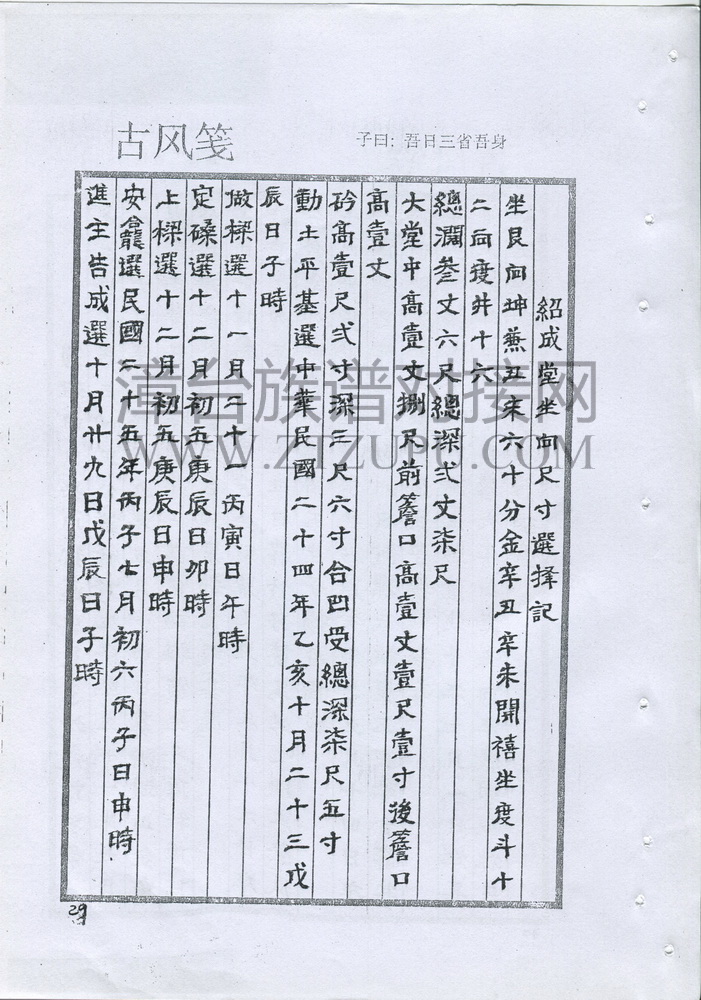 古风笺
子曰：吾日三省吾身
紹成堂坐向尺寸選擇記
坐艮向坤兼丑未六十分金辛丑辛未開禧坐度斗十
二向度井十六
總濶叄丈六尺總深弍丈柒尺
大堂中高壹丈捌尺前簷口高壹丈壹尺壹寸後簷口
高壹丈
矽高壹尺弍寸深三尺六寸合凹受總深柒尺五寸
動土平基選中華民國二十四年乙亥十月二十三戊
辰日子時
做樑選十一月二十一丙寅日午時
定磉選十二月初五庚辰日卯時
上樑選十二月初五庚辰日申時
安龕選民國二十五年丙子七月初六丙子日申時
進主告成選十月廿九日戊辰日子時
漳台族谱对接网
WWW.ZTZUPU.COM
29